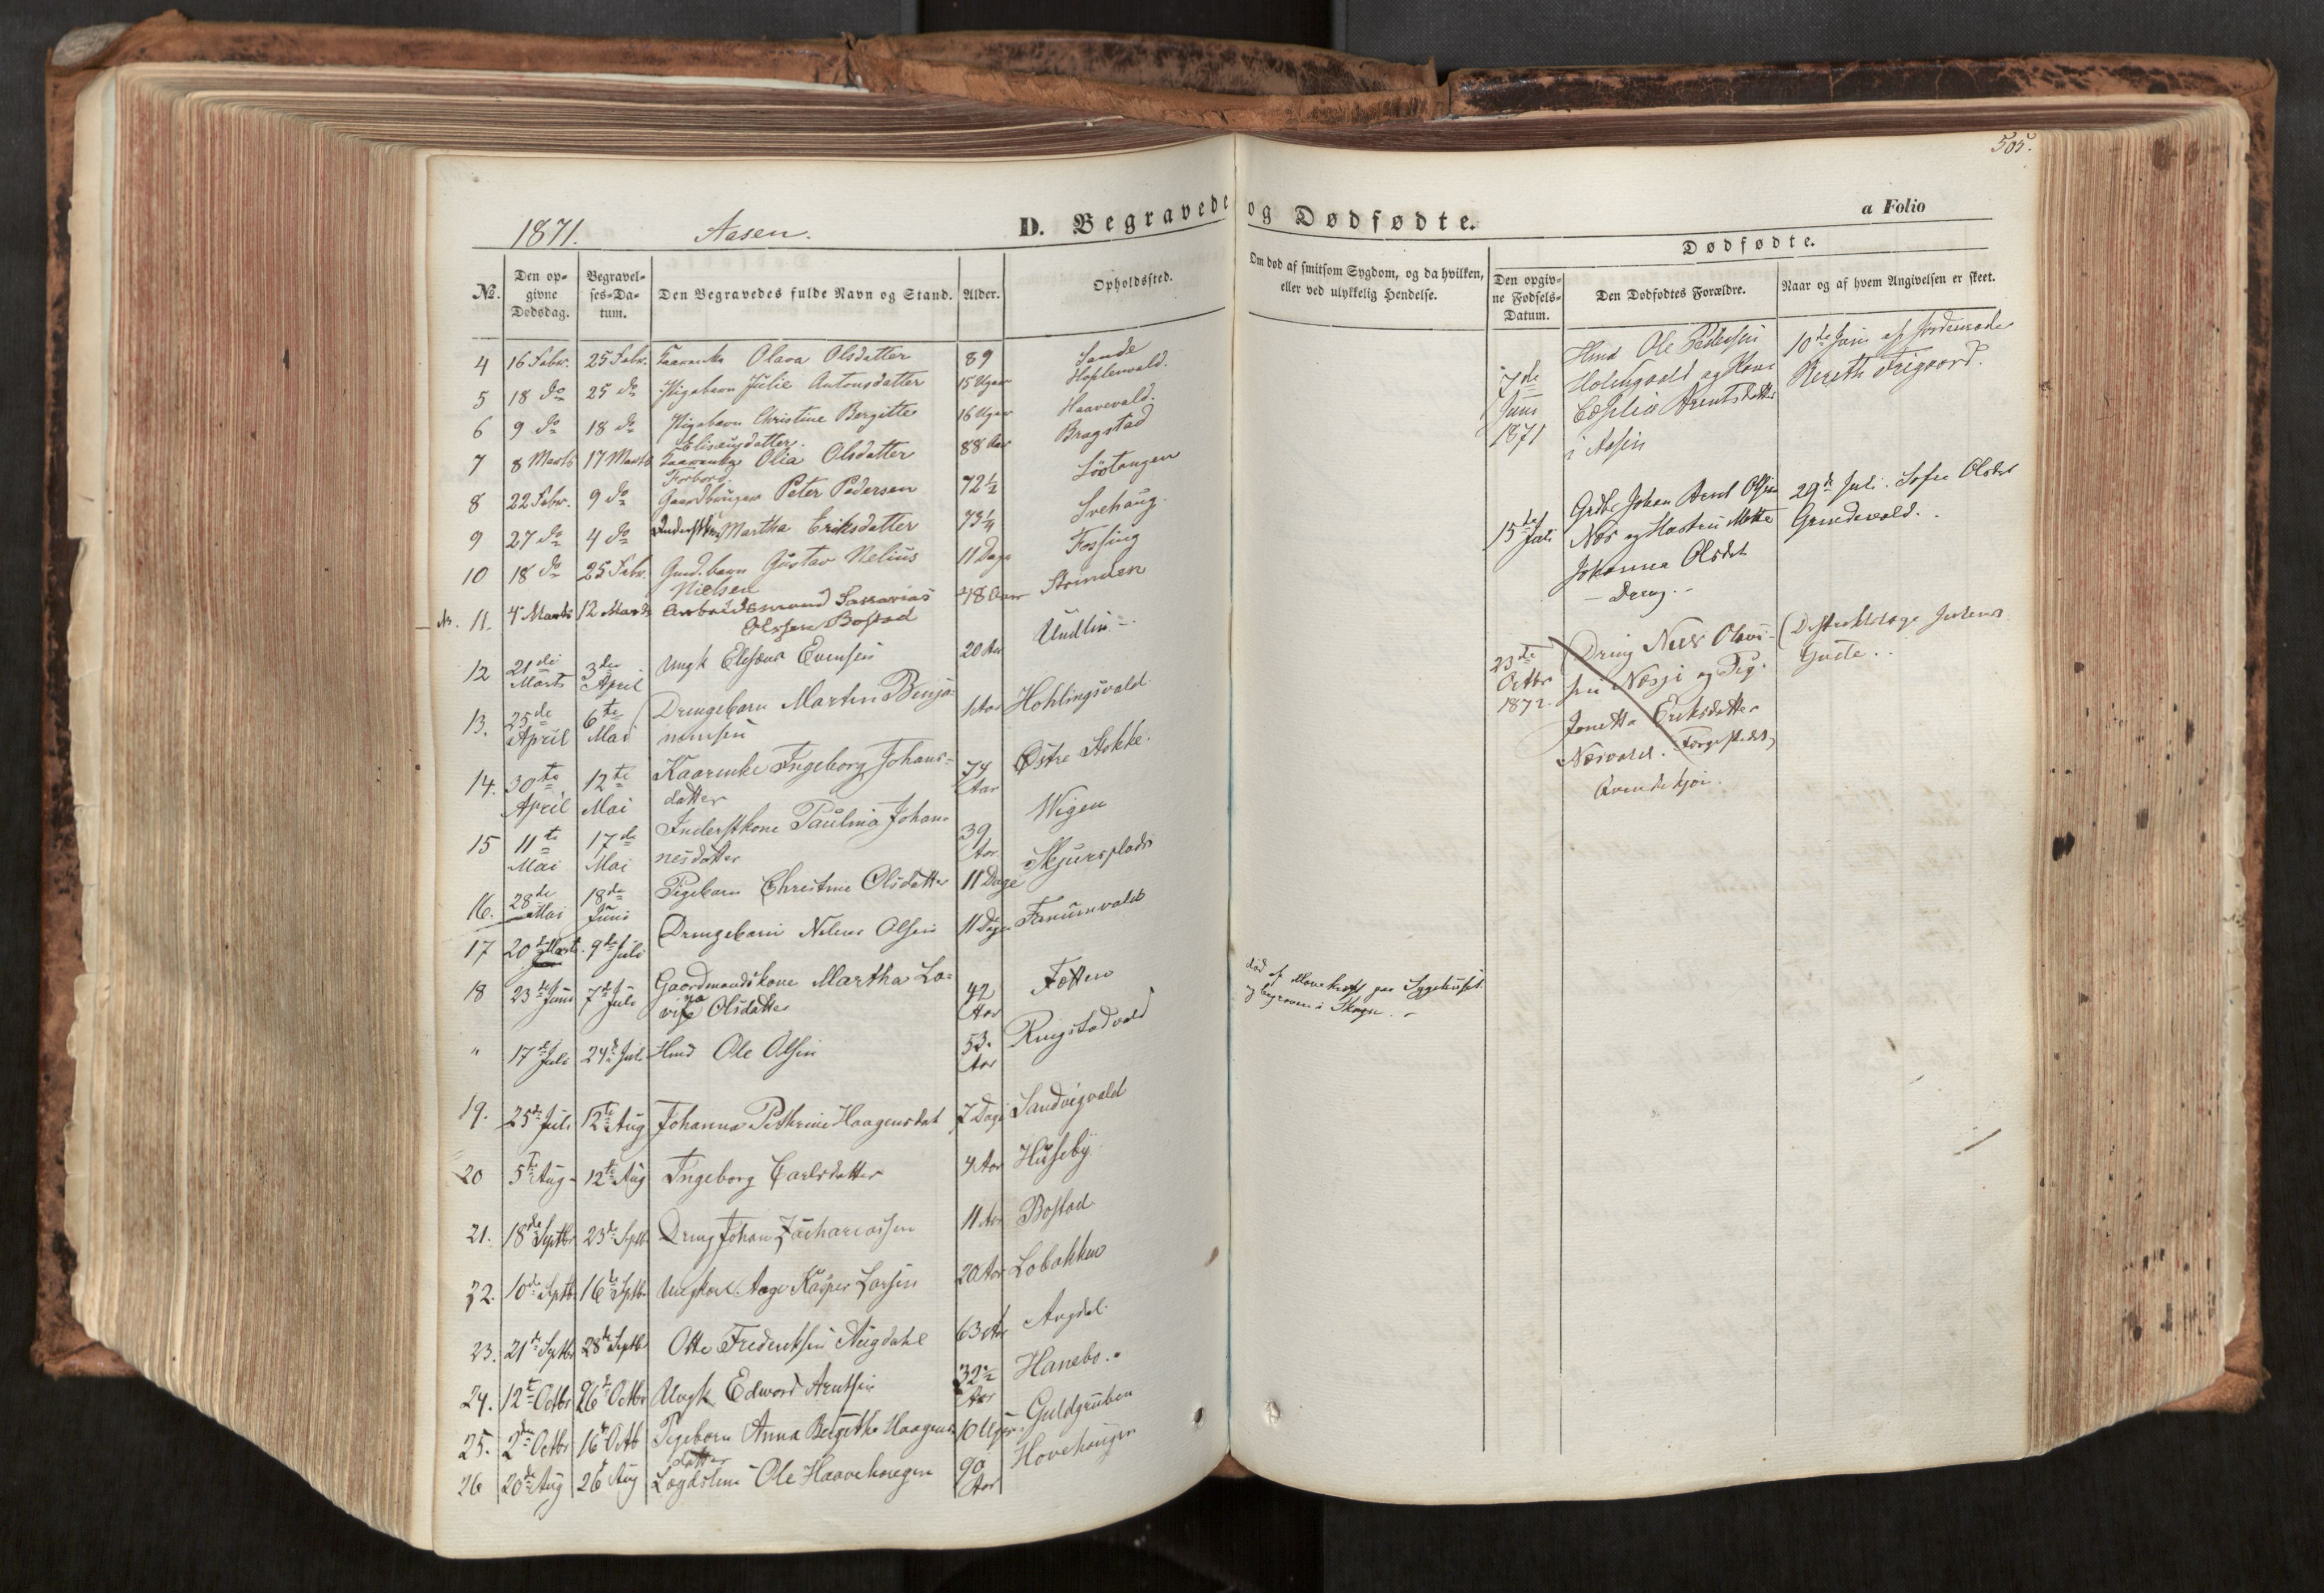 505.
1871. Aasen. D. Begravede og Dødfødte. a Folio
No. Den opgivne Dødsdag. Begravelses-Datum. Den Begravedes fulde Navn og Stand. Alder. Opholdssted. Om død af smitsom Sygdom, og da hvilken, eller ved ulykkelig Hendelse.
4 16 Febr. 25 Febr. Olava Olsdatter 89 Sande
5 18 do 25 do Pigebarn Julie Antonsdatter 15 Uger Hoplenvald.
6 9 do 18 do Pigebarn Christine Bergitte 16 Uger Haavevald.
Eliseusdatter.
7 8 Marts 17 Marts Olia Olsdatter 88 Aar Bragstad
Forbord.
8 22 Febr. 9 do Gaardbruger Peter Pedersen 72½ Löötangen
9 27 do 4 do Martha Eriksdatter 73¼ Svehaug.
10 18 do 25 Febr. Gaardb.barn Gustav Nelius 11 Dage Fossing
Nielsen
11. 4 Marts 12 Marts Arbeidsmand Sakarias 48 Aar Strinden
Olssen Bostad
12 21de Marts 3die April Ungk Elesæus Evensen 20 Aar Undlin
13. 25de April 6te Mai Drengebarn Martin Benja- 1 Aar Hoklingsvald
14. 30te April 12te Mai Kaarenke Ingeborg Johans- 74 Aar Østre Stokke.
datter
15 11te Mai 17de Mai Inderstkone Paulina Johan- 39 Aar Wigen
nesdatter
16. 28de Mai 18de Juni Pigebarn Christine Olsdatter 11 Dage
17 20de Marts 9de Juli Drengebarn Nelius Olsen 11 Dage Fanumvald
18 23de Juni 7de Juli Gaardmandskone Martha Lo- 42 Aar Fætten
visa Olsdatter
" 17de Juli 24de Juli Hmd Ole Olsen 53. Aar Ringstadvald død af Mavekræft paa Sygehuset
og begraven i Skogn.
19. 25de Juli 12te Aug Johanna Pethrine Haagensdat 7 Dage Sandvigvald
20 5te Aug 12te Aug Ingeborg Carlsdatter 4 Aar Husseby
21. 18de Septbr 23de Septb. Dreng Johan Zachariassen 11 Aar Bostad
22. 10de Septb 16de Septbr Ungkarl Aage Kasper Larsen 20 Aar Lobakken
23. 21de Septbr 28de Septbr Otte Frederiksen Augdahl 63 Aar Augdal.
24. 12te Octbr 26de Octbr Ungk Edward Arntsen 32½ Aar Hanebo.
25. 2den Octbr 16de Octb Pigebarn Anna Bergitha Haagens- 10 Uger Guldgruben
datter
26 20de Aug 26 Aug Lægdslem Ole Haavehaugen 90 Aar Hovehaugen
Dødfødte.
Den opgivne Fødsels-Datum. Den Dødfødtes Forældre. Naar og af hvem Angivelsen er skeet.
7de Juni 1871 Hmd Ole Pedersen 10de Juni af Jordemoder
og Kone Bereth Trigaard.
Arentsdatter
i Aasen
15de Juli Grdbr Johan Arnt Olsen 29de Juli. Sofie Olsdat
Næs og Hustru Mette Grindevald.
Johanna Olsdat
- Dreng. -
23de Octbr 1872. Dreng Olavs- Distriktslæge
sen Næsje og Pig.
Jonetta Eriksdatter
Næsvald.